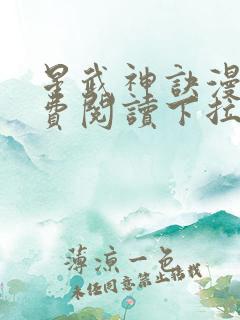 星武神訣漫
費閱讀下拉
薄涼一色
未徑同意禁止搭訕